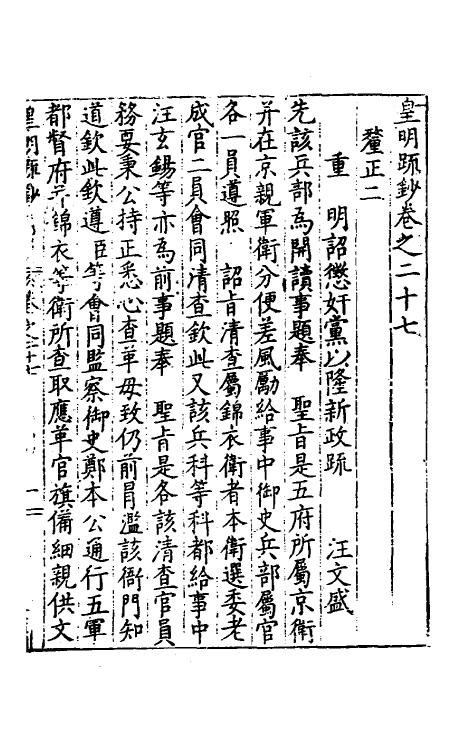 皇明疏鈔卷之二十七
釐正二
重　明詔懲奸黨以隆新政疏　汪文盛
先該兵部為開讀事題奉　聖旨是五府所屬京衛
并在京親軍衛分便差風勵給事中御史兵部屬官
各一員遵照　詔旨清查屬錦衣衛者本衛選委老
成官二員會同清查欽此又該兵科等科都給事中
汪玄錫等亦為前事題奉　聖旨是各該清查官員
務要秉公持正悉心查革毋致仍前冒濫該衙門知
道欽此欽遵臣等會同監察御史鄭本公通行五軍
都督府并錦衣等衛所查取應革官旗備細親供文
皇明疏鈔